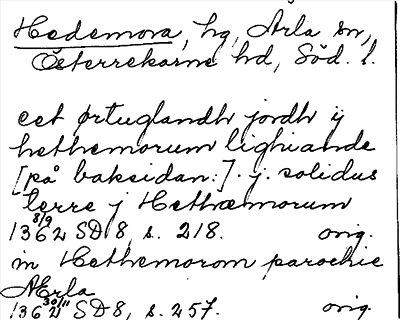 Hedemora, hg, Ärla sn,
Österrekarne hd, Söd. l.
eet ørtuglandh jordh ij
hethemorum lighiande
[på baksidan:] · j · solidus
terre j Hethæmorum
1362 8/9 SD 8, s. 218. orig.
in Hethemorom parochie
Ærla
1362 30/11 SD 8, s. 257. orig.